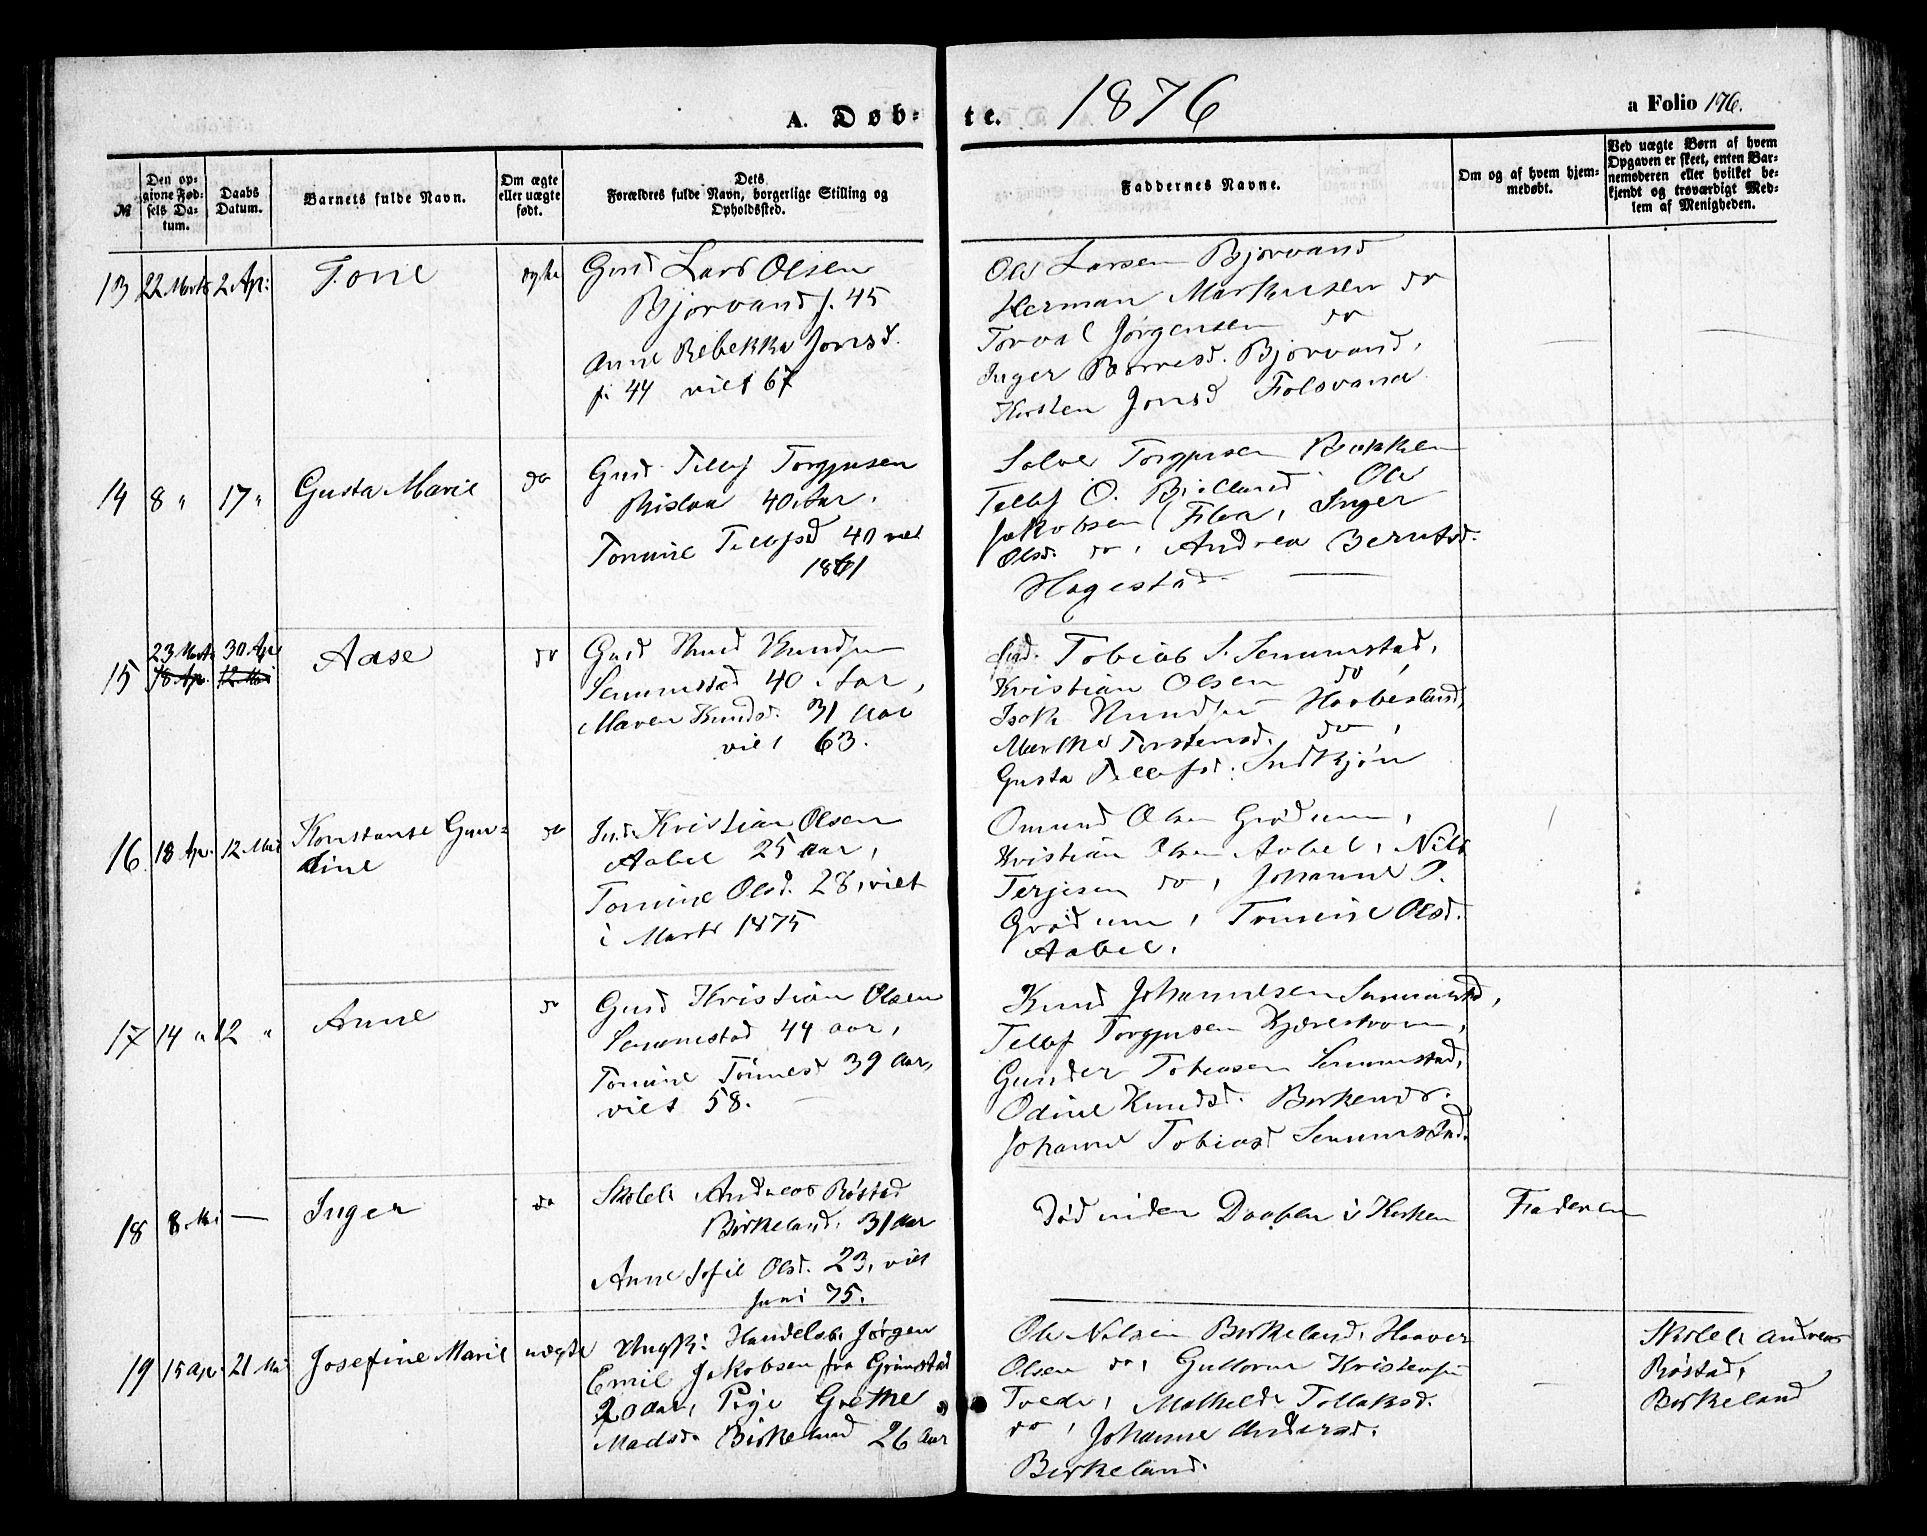 A. Døb-te. 1876
a Folio 176.
№
Den opgivne Fødsels Datum.
Daabs Datum.
Barnets fulde Navn.
Om ægte eller uægte født.
Dets Forældres fulde Navn, borgerlige Stilling og Opholdssted.
Faddernes Navne.
Om og af hvem hjemmedøbt.
Ved uægte Børn af hvem Opgaven er skeet, enten Barnemoderen eller hvilket bekjendt og troværdigt Medlem af Menigheden.
13 22 Marts 2 Apr: Tone ægte
Gmd Lars Olsen
Bjorvand f. 45
Anne Rebekka Jonsd.
f. 44 viet 67
Ole Larsen Bjorvand
Herman Markusen do
Torval Jørgensen do
Inger Børresd. Bjorvand,
Kirsten Jonsd Folsvand
14 8 " 17 " Gusta Marie do
Gmd Tellef Torgjusen
Rislaa 40 Aar.
Tomine Tellefsd 40 viet
1861
Solve Torgjusen Bakken
Tellef O. Bielland. Ole
Jakobsen Flaa, Inger
Olsd. do, Andrea Berntsd.
Hagestad.
15 23 Marts 30 Apr
18 Apr. 12 Mai
Aase do
Gmd Knud Knudsen
Senumstad 40 Aar,
Maren Knudsd. 31 Aar
viet 63.
Tobias S. Senumstad,
Kristian Olsen do,
Isak Knudsen Haabesland,
Marthe Torstensd. do,
Gusta Tellefsd. Indkjøn
16. 18 Apr. 12 Mai Konstanse Gun-
dine do
Ind. Kristian Olsen
Aabel 25 aar,
Tomine Olsd. 28, viet
i Marts 1875
Omund Olsen Grødum,
Kristian Olsen Aabel, Nils
Terjesen do, Johanne O.
Grødum, Tomine Olsd.
Aabel.
17 14 " 12 " Anne do
Gmd Kristian Olsen
Senumstad 44 aar,
Tomine Tønnesd 39 aar,
viet 58.
Knud Johannesen Senumstad,
Tellef Torgjusen Kjærestrom,
Gunder Tobiasen Senumstad,
Odine Knudsd. Birkenes.
Johanne Tobiasd Senumstad.
18 8 Mai — Inger do
Skolel. Andreas Røstad
Birkeland. 31 aar
Anne Sofie Olsd. 23, viet
Juni 75.
Død inden Daaben i Kirken
Faderen
19 15 apr 21 Mai Josefine Marie uægte
Ungk: Handelsb. Jørgen
Emil Jakobsen fra Grimstad
20 aar, Pige Grethe
Madsd. Birkeland 26 Aar
Ole Nilsen Birkeland, Haaver
Olsen do, Guttorm Kristensen
Tvede, Mathilde Tollaksd.
do, Johanne Andersd.
Birkeland.
Skolel. Andreas
Røstad,
Birkeland